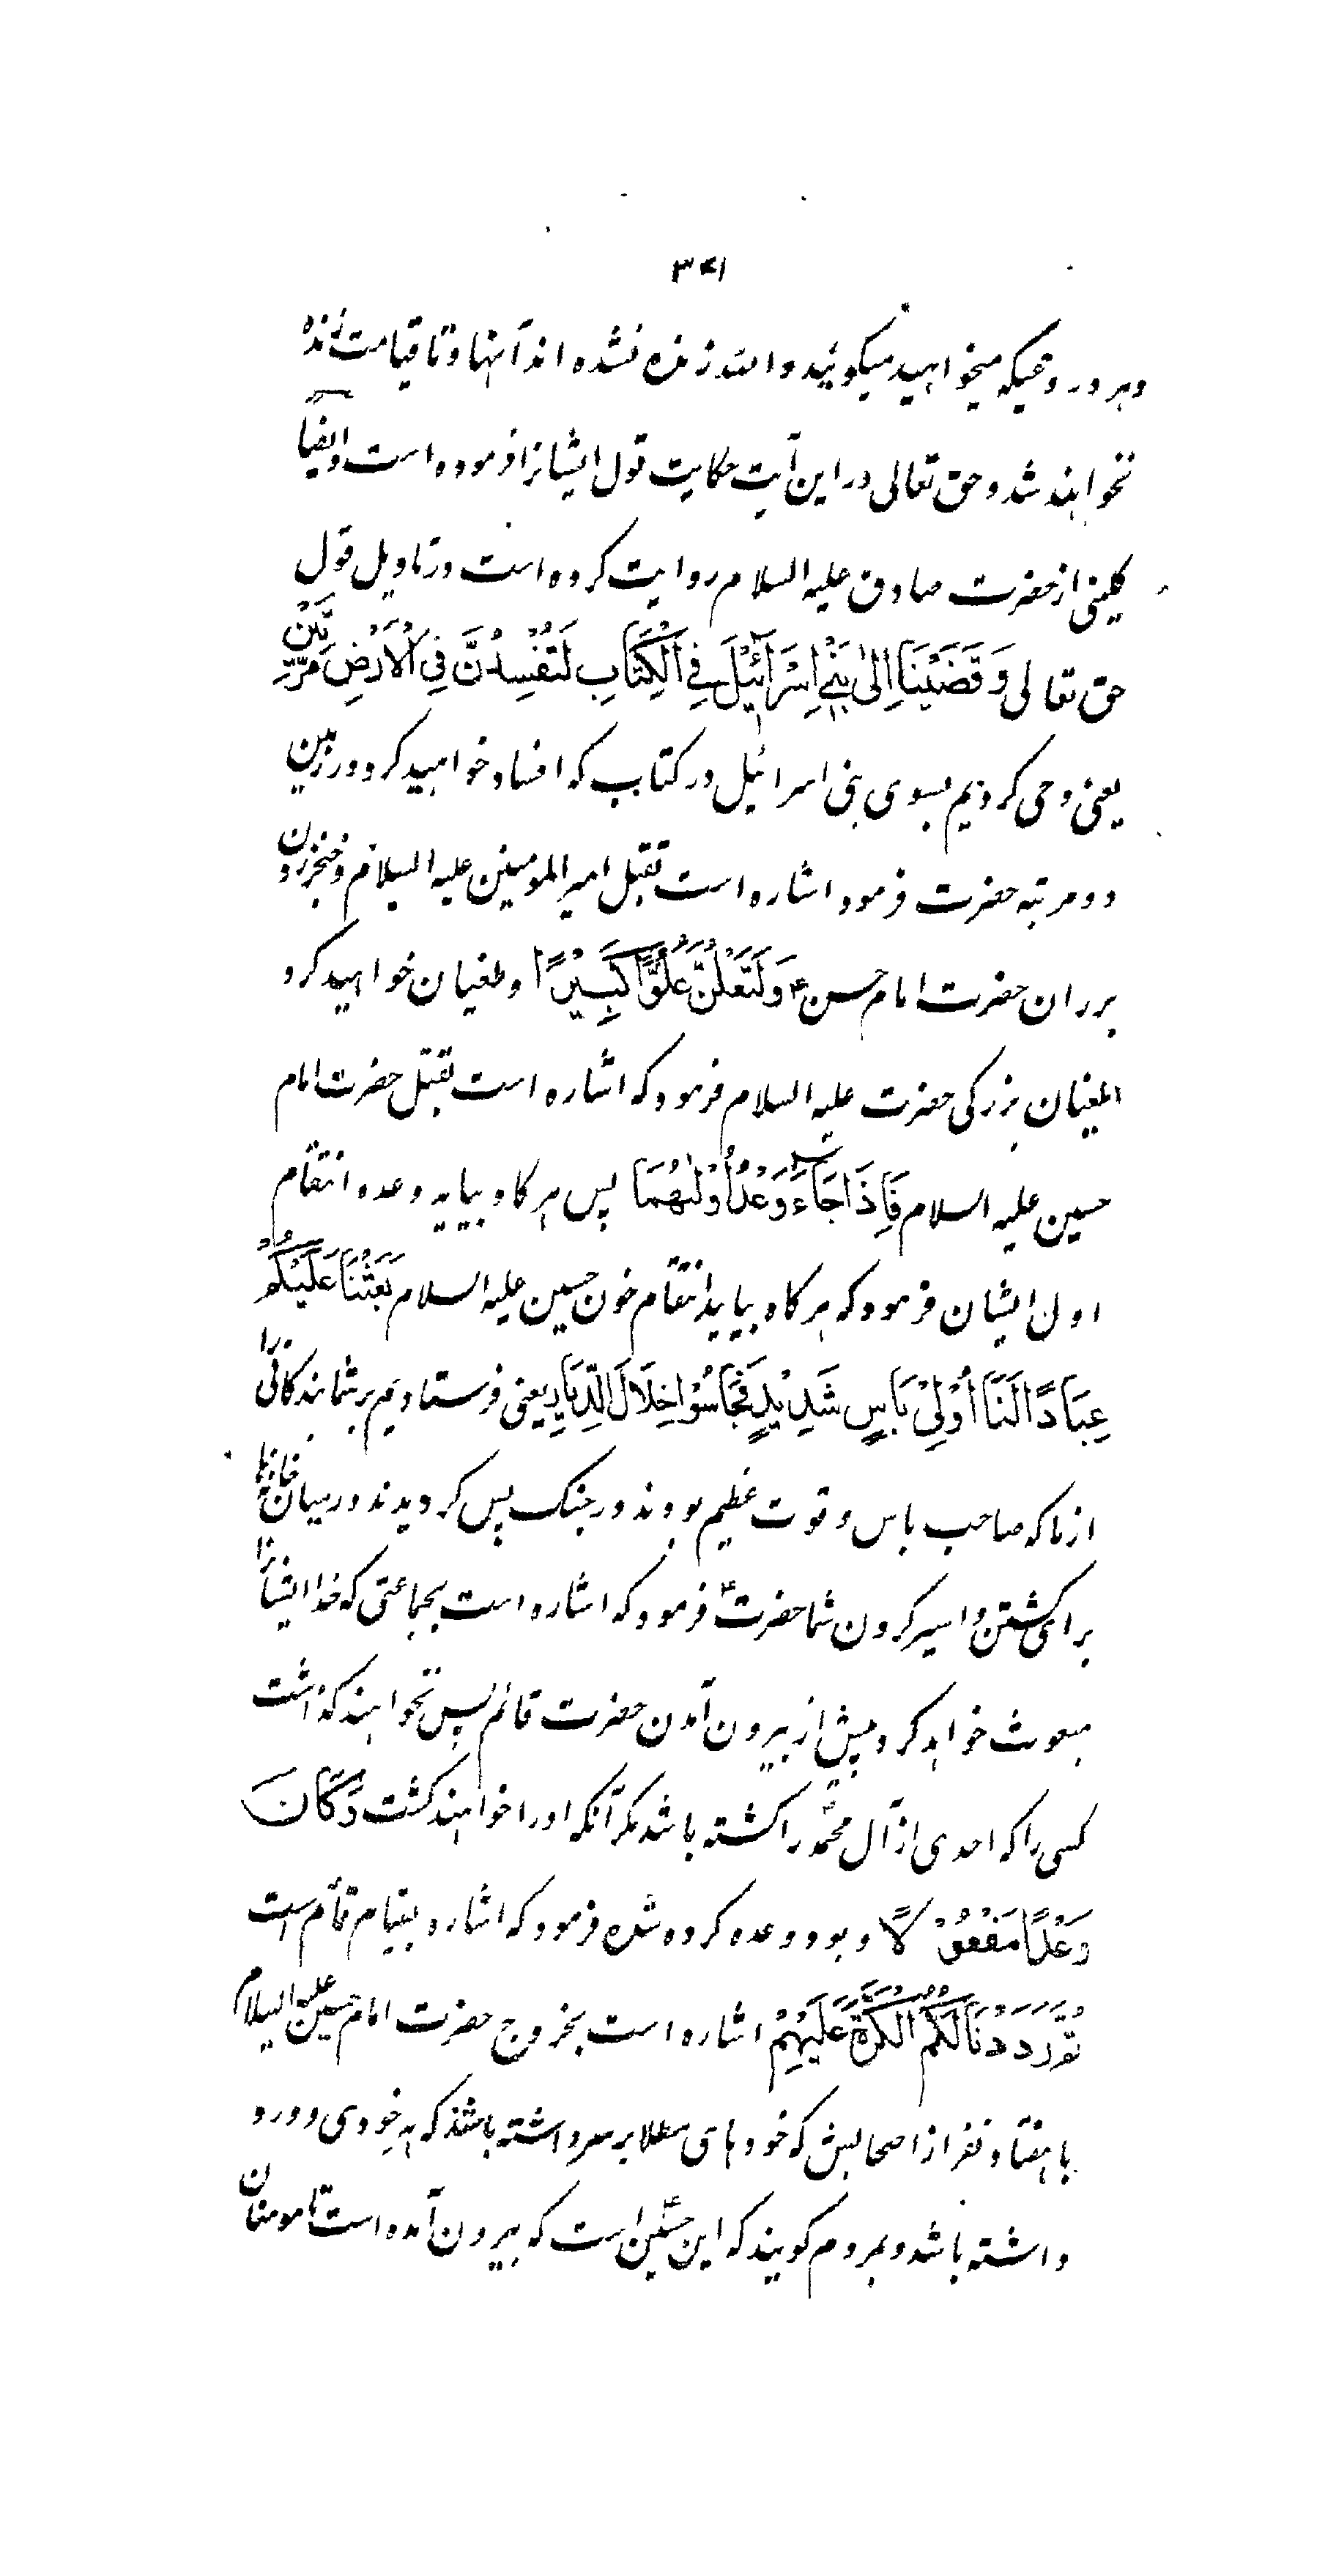 ۳۴۱
و هر دروغیکه میخواهید میگوئید واللہ زنده نشده اند آنها و تا قیامت زنده
نخواهند شد و حق تعالی در این آیت حکایت قول ایشانرا فرموده است و ایضاً
کلینی از حضرت صادق علیه السلام روایت کرده است در تاویل قول
حق تعالی وَقَضَيْنَا اِلىٰ بَنِيْ اِسْرَآئِيْلَ فِي الْكِتَابِ لَتُفْسِدُنَّ فِي الْاَرْضِ مَرَّتَيْنِ
یعنی وحی کردیم بسوی بنی اسرائیل در کتاب که افساد خواهید کرد در زمین
دو مرتبه حضرت فرمود اشاره است بقتل امیر المومنین علیه السلام و خنجر زدن
بر ران حضرت امام حسن ع وَلَتَعْلُنَّ عُلُوًّا كَبِيْرًا و طغیان خواهید کرد
طغیان بزرگی حضرت علیه السلام فرمود که اشاره است بقتل حضرت امام
حسین علیه السلام فَاِذَا جَآءَ وَعْدُ اُوْلٰهُمَا پس هر گاه بیاید وعده انتقام
اول ایشان فرمود که هر گاه بیاید انتقام خون حسین علیه السلام بَعَثْنَا عَلَيْكُمْ
عِبَادًا لَنَا اُوْلِيْ بَاسٍ شَدِيْدٍ فَجَاسُوْا خِلَالَ الدِّيَارِ یعنی فرستادیم بر شما بندگانی را
از ما که صاحب باس و قوت عظیم بودند در جنگ پس گردیدند در میان خانها
برای کشتن و اسیر کردن شما حضرت ع فرمود که اشاره است بجماعتی که خدا ایشانرا
مبعوث خواهد کرد پیش از بیرون آمدن حضرت قائم پس نخواهند گذاشت
کسی را که احدی از آل محمد را کشته باشد مگر آنکه او را خواهند کشت وَكَانَ
وَعْدًا مَفْعُوْلًا و بود وعده کرده شده فرمود که اشاره بقیام قائم است
ثُمَّ رَدَدْنَا لَكُمُ الْكَرَّةَ عَلَيْهِمْ اشاره است بخروج حضرت امام حسین علیه السلام
با هفتاد نفر از اصحابش که خودهای مطلا بر سر داشته باشند که هر خودی دو رو
داشته باشد و بمردم گویند که این حسین ع است که بیرون آمده است تا مومنان